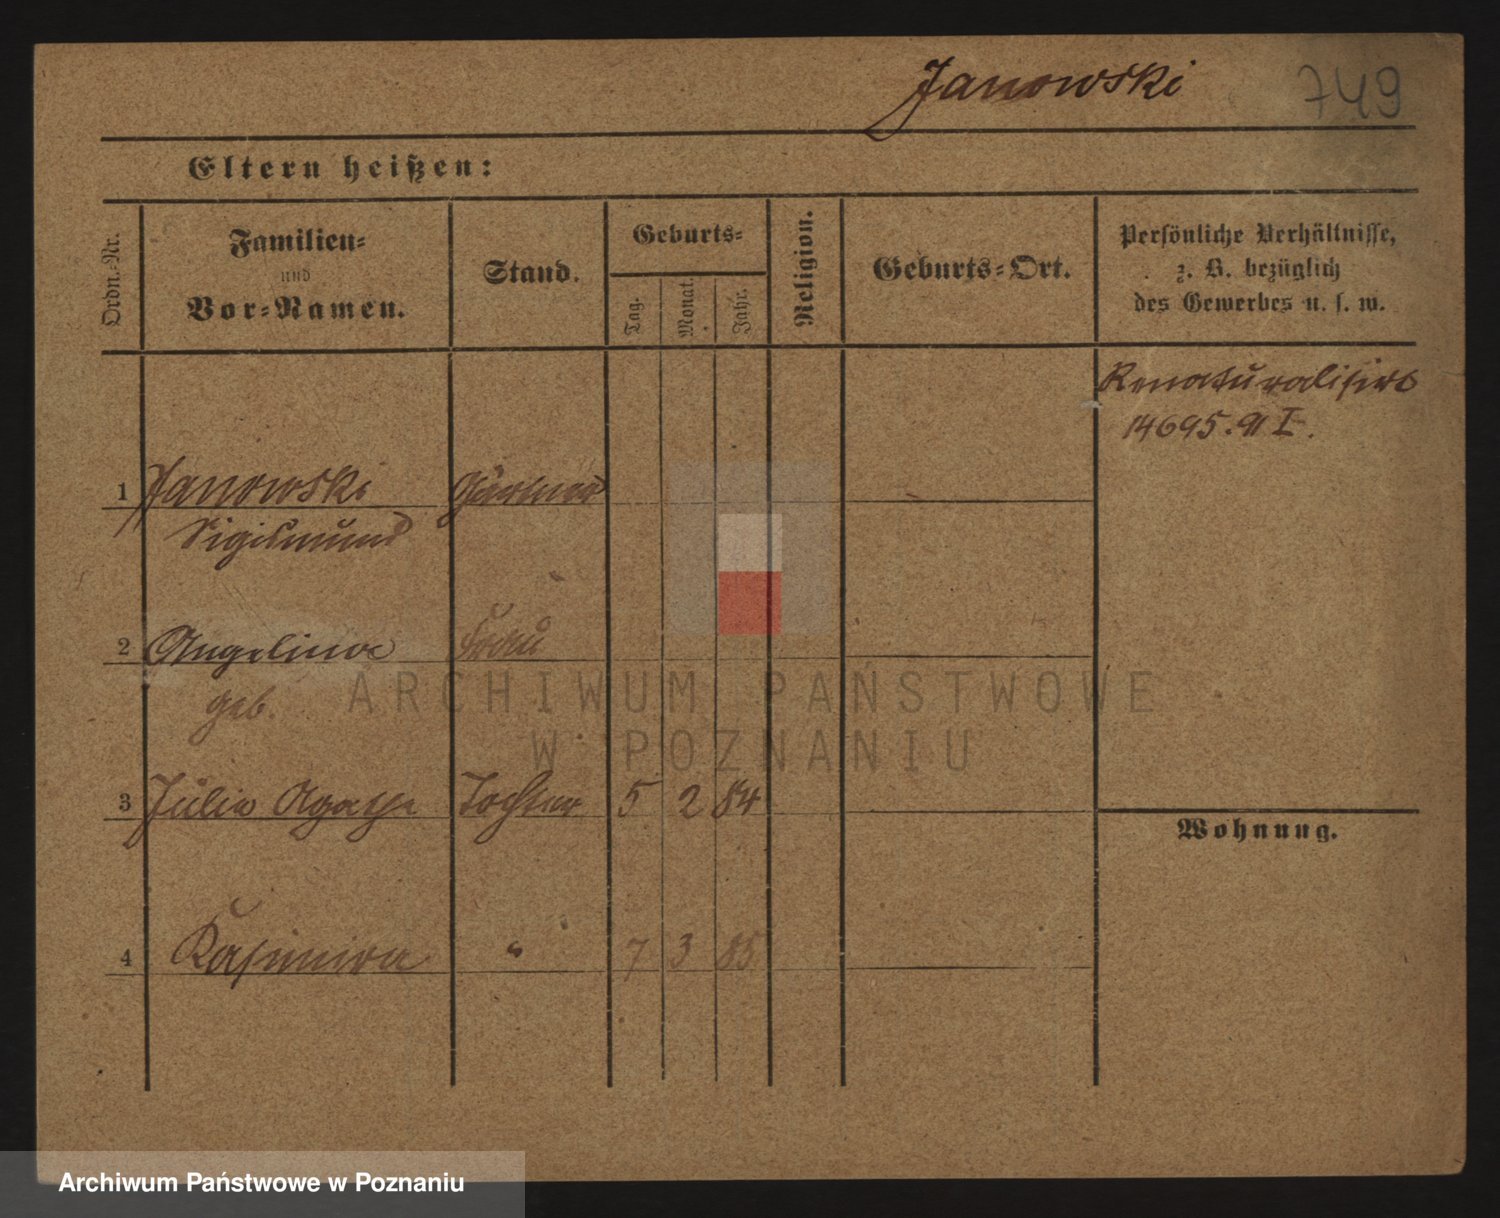 Janowski 749
Eltern heißen:
Ordn.-Nr.
Familien-
und
Vor-Namen.
Stand.
Geburts-
Tag.
Monat.
Jahr.
Religion.
Geburts-Ort.
Persönliche Verhältnisse,
z. B. bezüglich
des Gewerbes u. s. w.
Renaturalisirt
14695.91 I.
1 Janowski Gärtner
Sigismund
2 Angelina Frau
geb.
3 Julia Agathe Tochter 5 2 84
Wohnung.
4 Kasimira " 7 3 85
ARCHIWUM PAŃSTWOWE
W POZNANIU
Archiwum Państwowe w Poznaniu